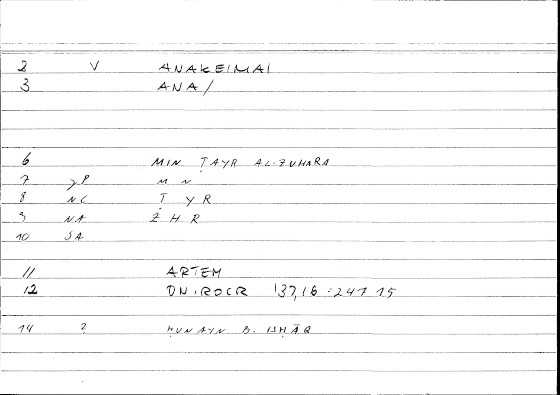 2 V ANAKEIMAI
3 ANA/
6 MIN ṬAYR AL-ZUHARA
7 M N
8 NC Ṭ Y R
9 NA Z H R
10 SA
11 ARTEM
12 ONIROCR 137,16 = 247 15
14 ? ḤUNAYN B. ISḤĀQ